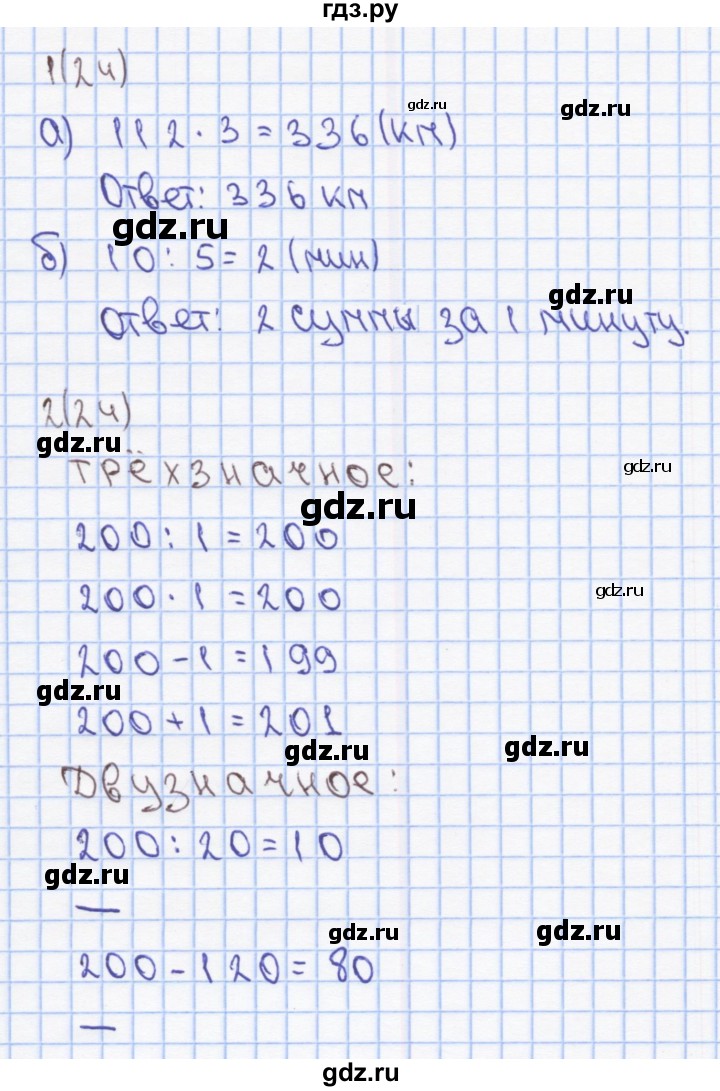 гдз.ру
1(24)
gdz.ru
gdz.ru
а) 112 · 3 = 336 (км)
Ответ: 336 км
gdz.ru
б) 10 : 5 = 2 (мин)
gdz.ru
Ответ: 2 суммы за 1 минуту.
2(24)
gdz.ru
трёхзначное:
gdz.ru
gdz.ru
200 : 1 = 200
gdz.ru
200 · 1 = 200
200 - 1 = 199
gdz.ru
200 + 1 = 201
gdz.ru
gdz.ru
Двузначное:
200 : 20 = 10
gdz.ru
—
gdz.ru
gdz.ru
200 - 120 = 80
—
gdz.ru
gdz.ru